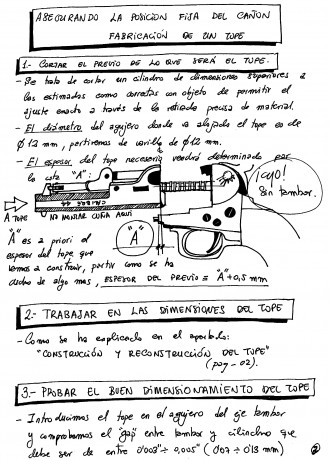 ASEGURANDO LA POSICION FIJA DEL CAÑON
FABRICACIÓN DE UN TOPE
1.- CORTAR EL PREVIO DE LO QUE SERÁ EL TOPE.
- Se trata de cortar un cilindro de dimensiones superiores a
las estimadas como correctas con objeto de permitir el
ajuste exacto a través de la retirada precisa de material.
- El diámetro del agujero donde va alojado el tope es de
Ø 12 mm, partiremos de varilla de Ø 12 mm.
- El espesor del tope necesario vendrá determinado por
la cota "A":
¡OJO!
Sin tambor.
A TOPE
NO MONTAR CUÑA AQUÍ
"A"
"A" es a priori el
espesor del tope que
vamos a construir, partir como se ha
dicho de algo mas, ESPESOR DEL PREVIO = "A"+0,5 mm
2.- TRABAJAR EN LAS DIMENSIONES DEL TOPE
- Como se ha explicado en el apartado:
"CONSTRUCCIÓN Y RECONSTRUCCIÓN DEL TOPE"
(pag - 02).
3.- PROBAR EL BUEN DIMENSIONAMIENTO DEL TOPE
- Introducimos el tope en el agujero del eje tambor
y comprobamos el "gap" entre tambor y cilindro que
debe ser de entre 0'003" ÷ 0,005" (0'07 ÷ 0'13 mm)
2